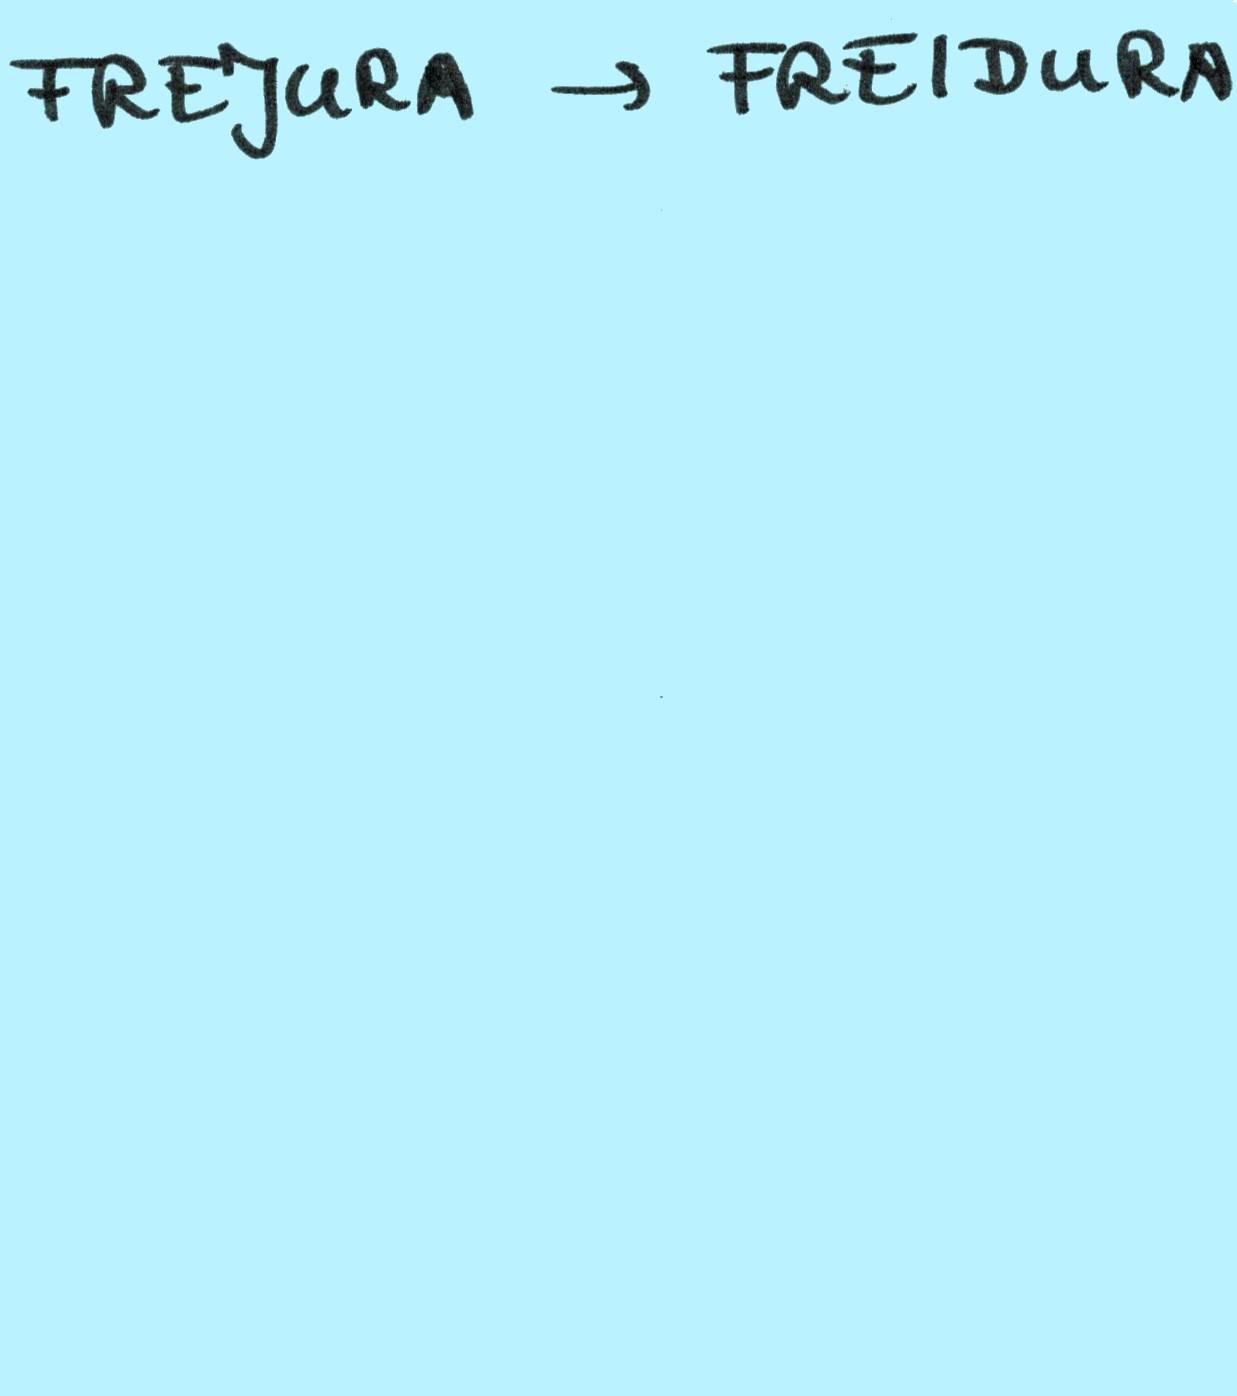 FREJURA → FREIDURA